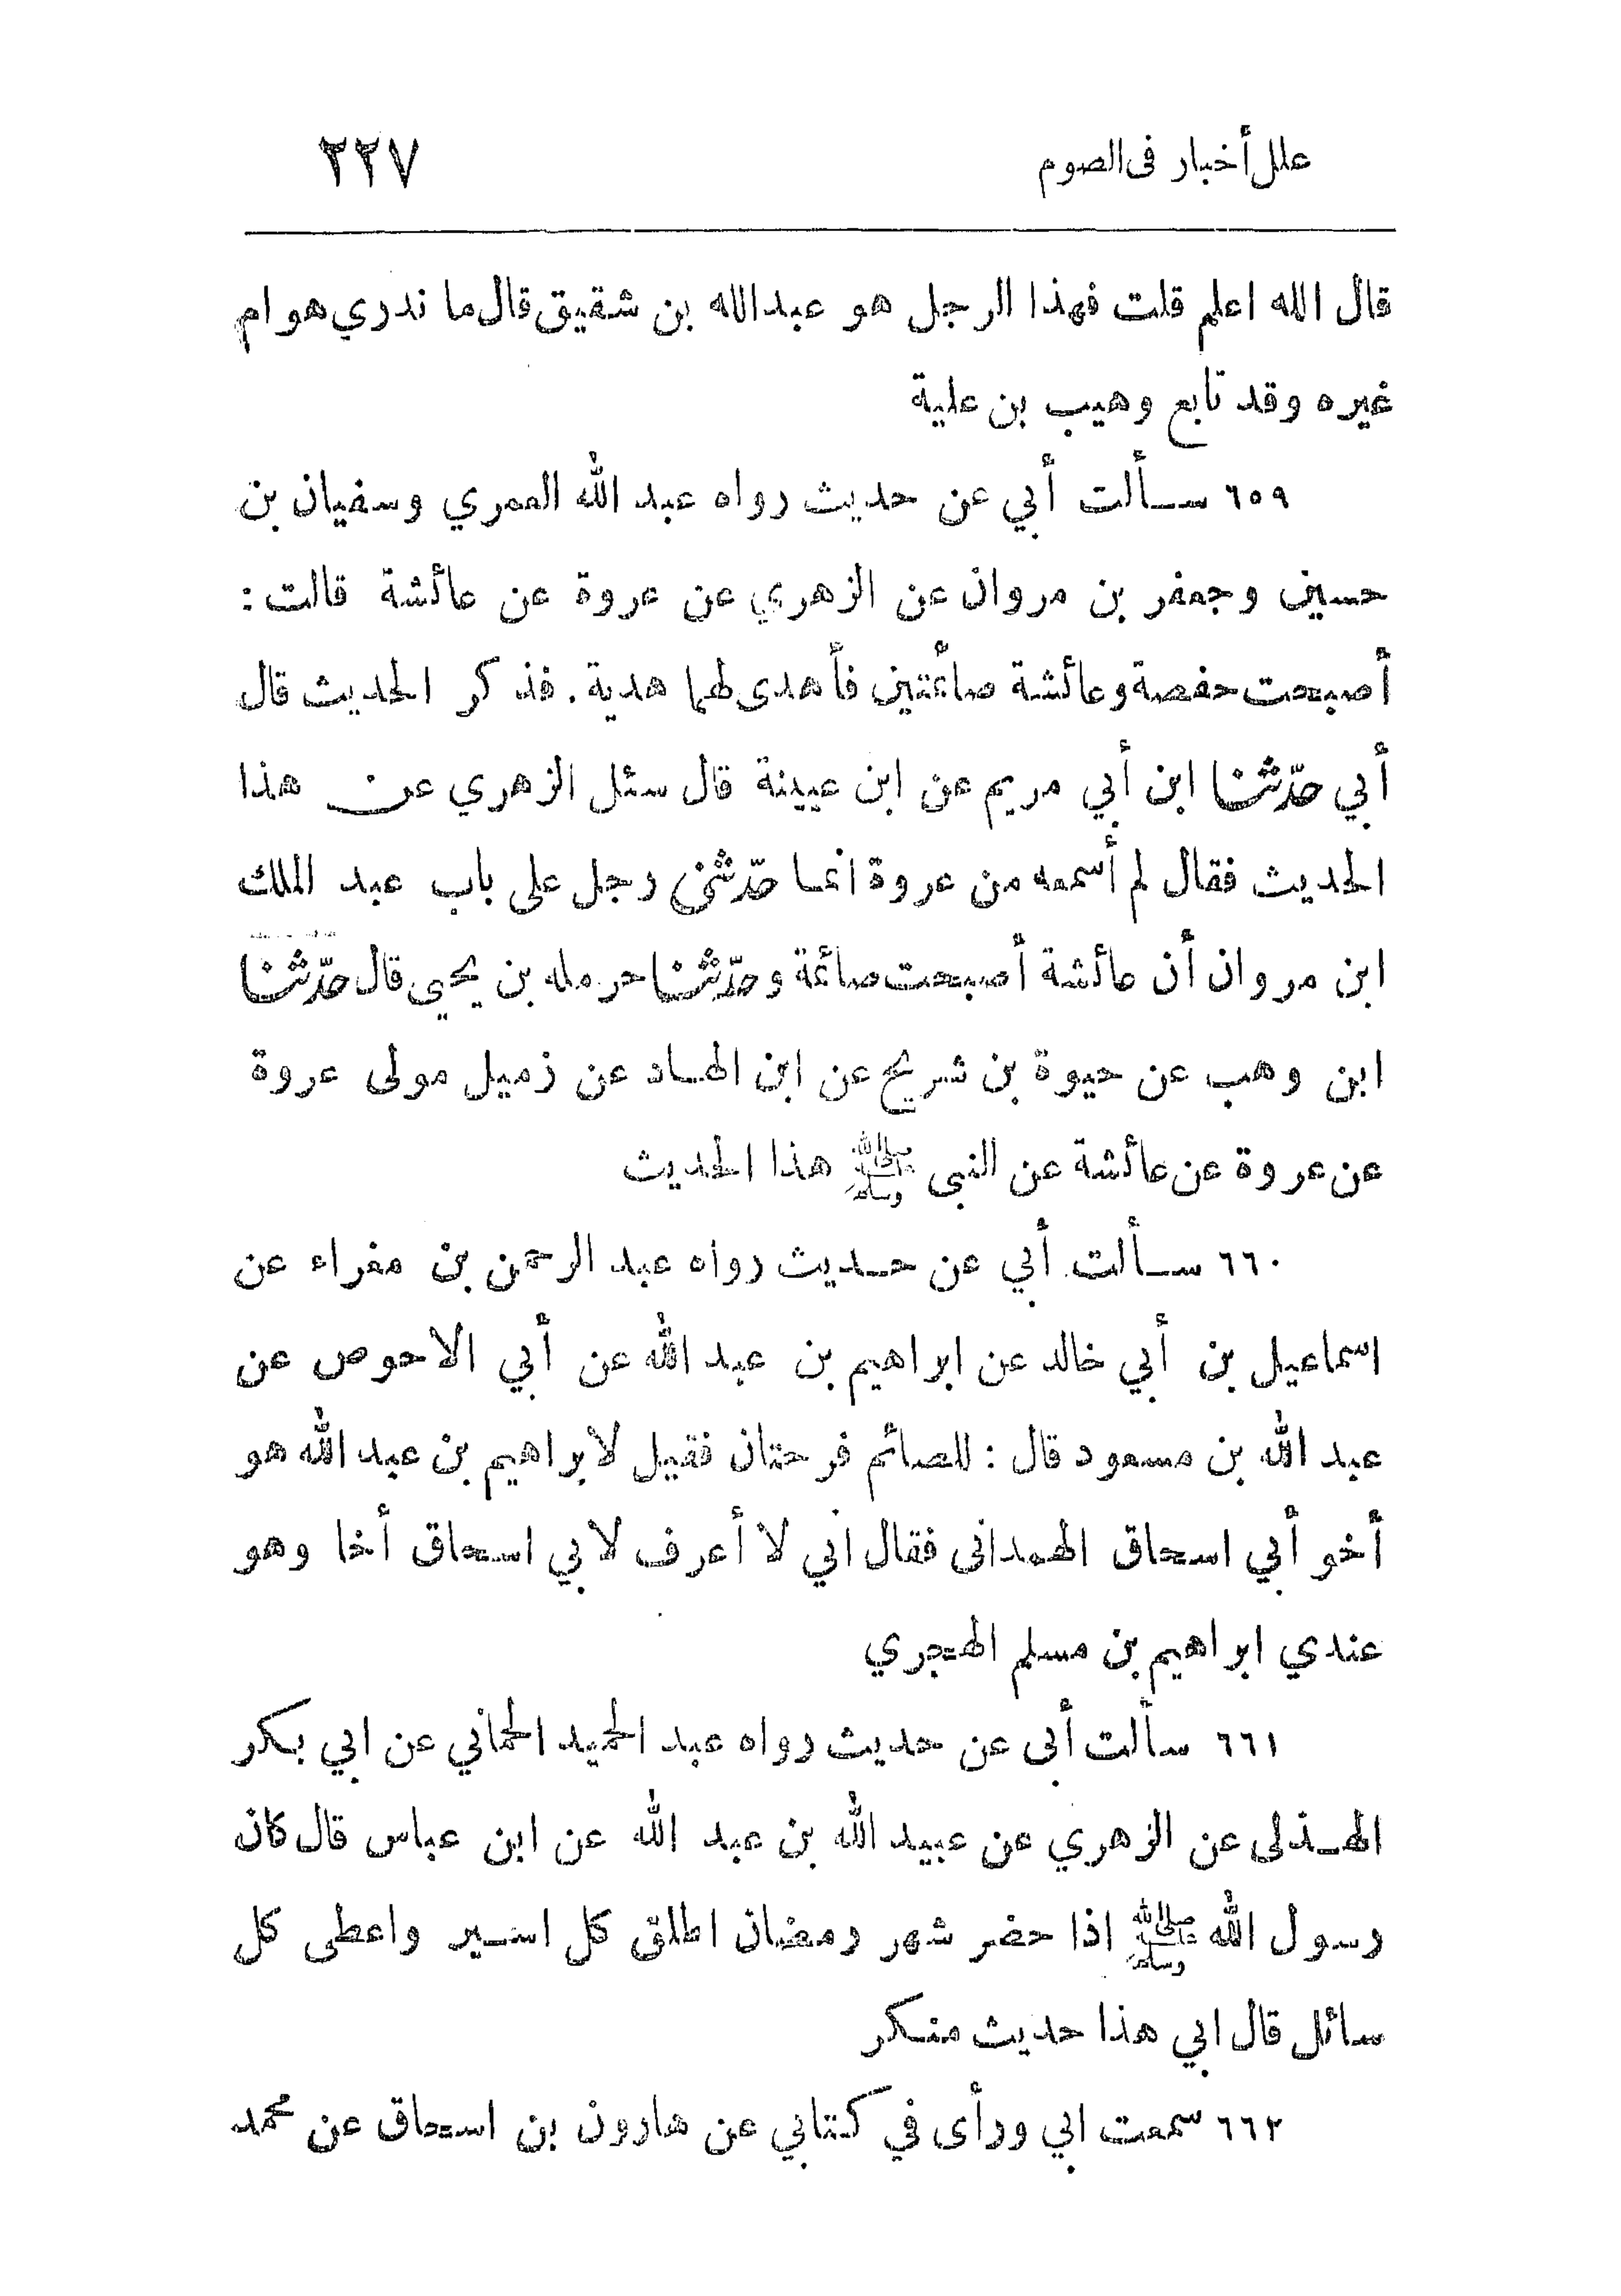 علل أخبار فى الصوم ٢٢٧
قال الله اعلم قلت فهذا الرجل هو عبدالله بن شقيق قال ما ندري هو ام
غيره وقد تابع وهيب بن علية
٦٥٩ سألت أبي عن حديث رواه عبد الله العمري وسفيان بن
حسين وجعفر بن مروان عن الزهري عن عروة عن عائشة قالت :
أصبحت حفصة وعائشة صائمتين فأهدى لهما هدية . فذكر الحديث قال
أبي حدّثنا ابن أبي مريم عن ابن عيينة قال سئل الزهري عن هذا
الحديث فقال لم أسمعه من عروة انما حدّثنى رجل على باب عبد الملك
ابن مروان أن عائشة أصبحت صائمة وحدّثنا حرمله بن يحيى قال حدّثنا
ابن وهب عن حيوة بن شريح عن ابن الهاد عن زميل مولى عروة
عن عروة عن عائشة عن النبى ﷺ هذا الحديث
٦٦٠ سألت أبي عن حديث رواه عبد الرحمن بن مغراء عن
اسماعيل بن أبي خالد عن ابراهيم بن عبد الله عن أبي الاحوص عن
عبد الله بن مسعود قال : للصائم فرحتان فقيل لابراهيم بن عبد الله هو
أخو أبي اسحاق الهمدانى فقال ابي لا أعرف لابي اسحاق أخا وهو
عندي ابراهيم بن مسلم الهجري
٦٦١ سألت أبى عن حديث رواه عبد الحميد الحماني عن ابي بكر
الهذلى عن الزهري عن عبيد الله بن عبد الله عن ابن عباس قال كان
رسول الله ﷺ اذا حضر شهر رمضان اطلق كل اسير واعطى كل
سائل قال ابي هذا حديث منكر
٦٦٢ سمعت ابي ورأى في كتابي عن هارون بن اسحاق عن محمد